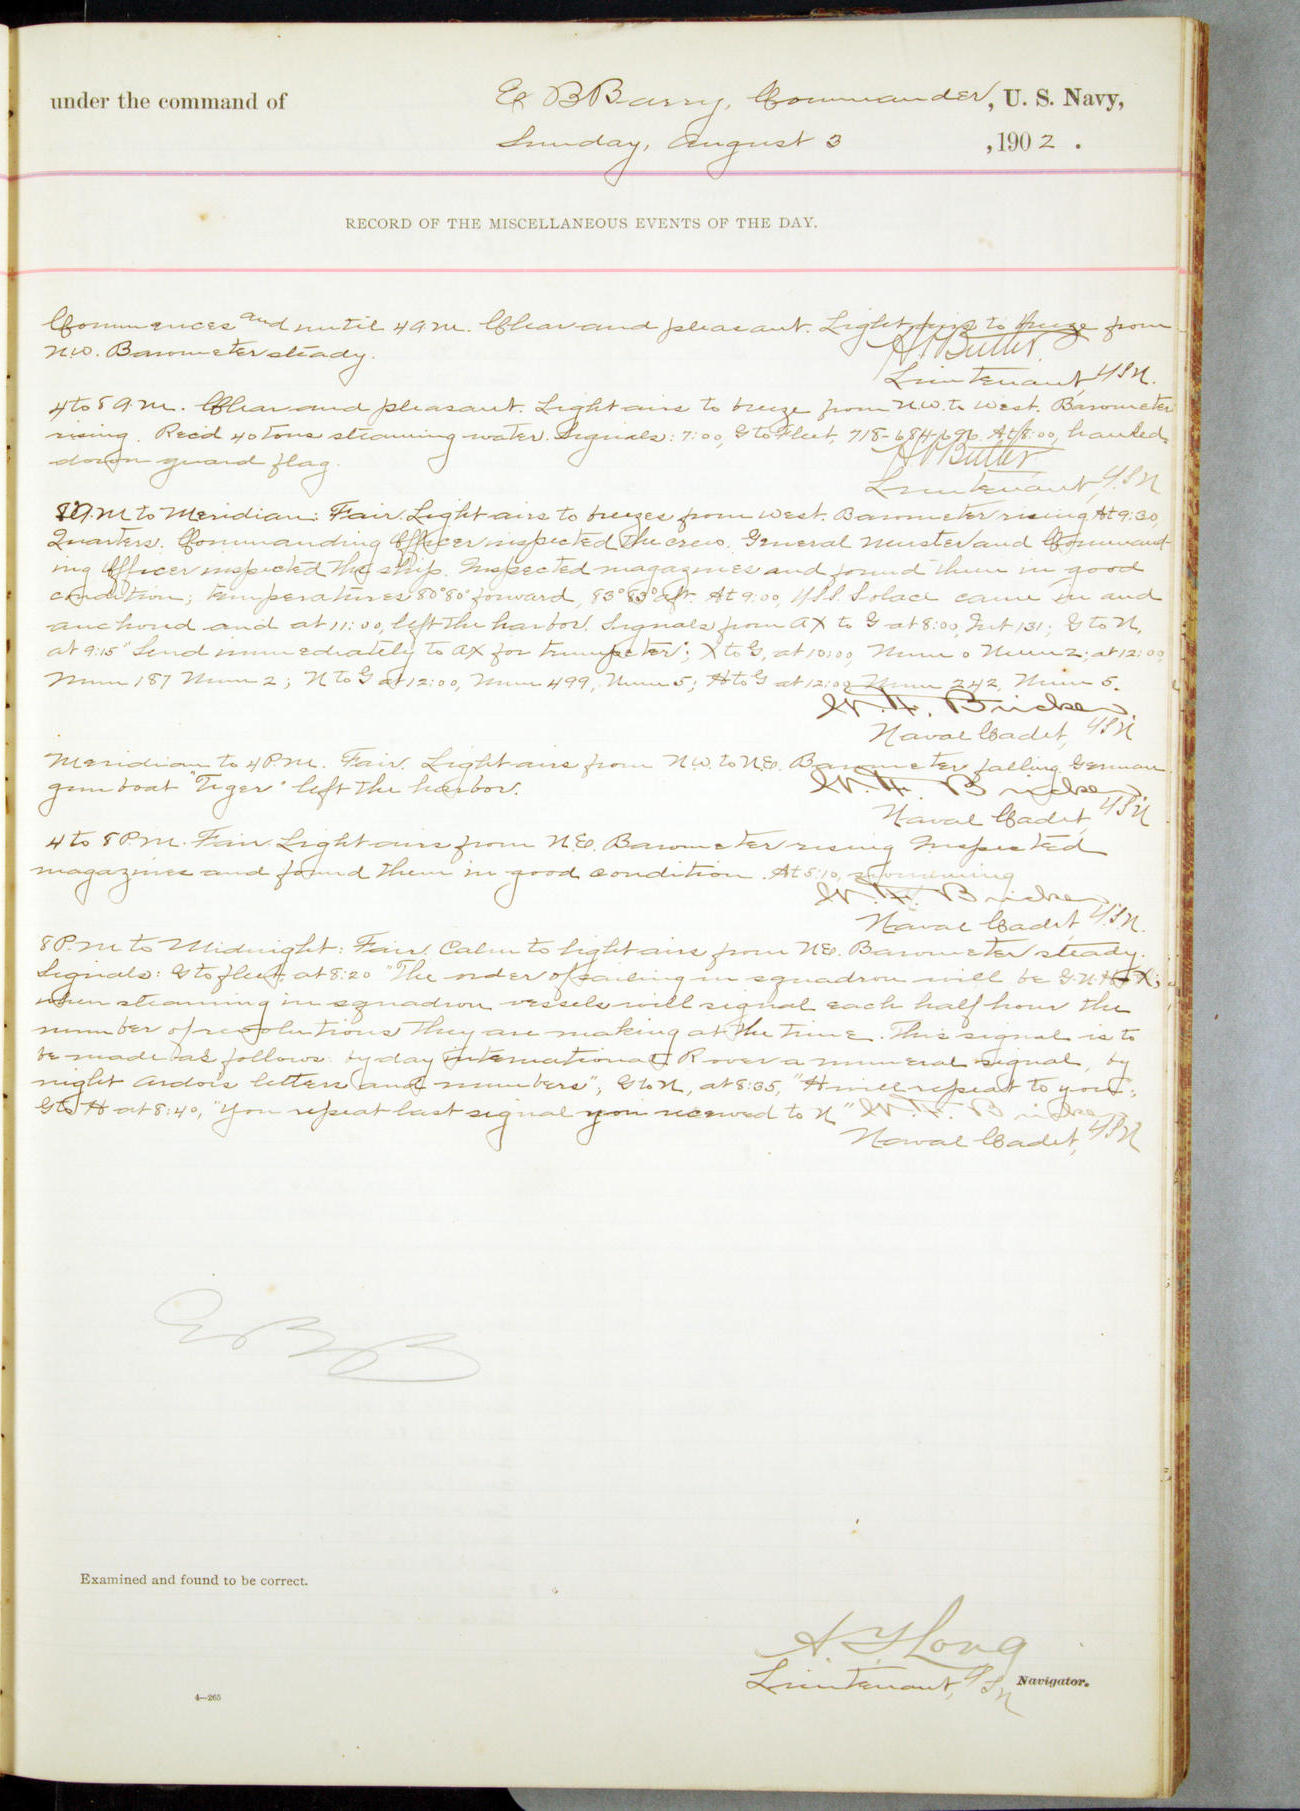 under the command of E B Barry, Commander, U. S. Navy,
Sunday, August 3, 1902.
RECORD OF THE MISCELLANEOUS EVENTS OF THE DAY.
Commences and until 4 a.m. Clear and pleasant. Light airs to breeze from
N.W. Barometer steady.
H. Butler.
Lieutenant, U.S.N.
4 to 8 A.M. Clear and pleasant. Light airs to breeze from N.W. to West. Barometer
rising. Rec'd 40 tons steaming water. Signals: 7:00, G to Fleet, 718-684-696. At 8:00, hauled
down guard flag.
Butler
Lieutenant, U.S.N
8 A.M to Meridian: Fair. Light airs to breezes from West. Barometer rising. At 9:30,
Quarters. Commanding Officer inspected the crew. General Muster and Command-
ing Officer inspected the ship. Inspected magazines and found them in good
condition; temperatures 80° 80° forward, 83° 83° aft. At 9:00, U.S.S. Solace came in and
anchored and at 11:00, left the harbor. Signals from AX to G at 8:00, Int 131; G to N,
at 9:15 "Send immediately to AX for trumpeter"; X to G, at 10:00, Num 0 Num 2; at 12:00,
Num 187 Num 2; N to G at 12:00, Num 499, Num 5; H to G at 12:00 Num 242, Num 5.
W. F. Bricker,
Naval Cadet, U.S.N.
Meridian to 4 P.M. Fair. Light airs from N.W. to N.E. Barometer falling. German
gun boat "Tiger" left the harbor.
W. F. Bricker,
Naval Cadet, U.S.N
4 to 8 P.M. Fair Light airs from N.E. Barometer rising Inspected
magazines and found them in good condition. At 5:10,
W. F. Bricker
Naval Cadet U.S.N.
8 P.M to Midnight: Fair. Calm to light airs from N.E. Barometer steady.
Signals: G to fleet, at 8:20 "The order of sailing in squadron will be G.N.H X;
when steaming in squadron vessels will signal each half hour the
number of revolutions they are making at the time. This signal is to
be made as follows: by day international R over a numeral signal, by
night Ardois letters and numbers"; G to N, at 8:35, "H will repeat to you";
G to H at 8:40, "You repeat last signal you received to N" W. F. Bricker
Naval Cadet, U.S.N
EBB
Examined and found to be correct.
A. T. Long
Lieutenant, U.S.N Navigator.
4—265